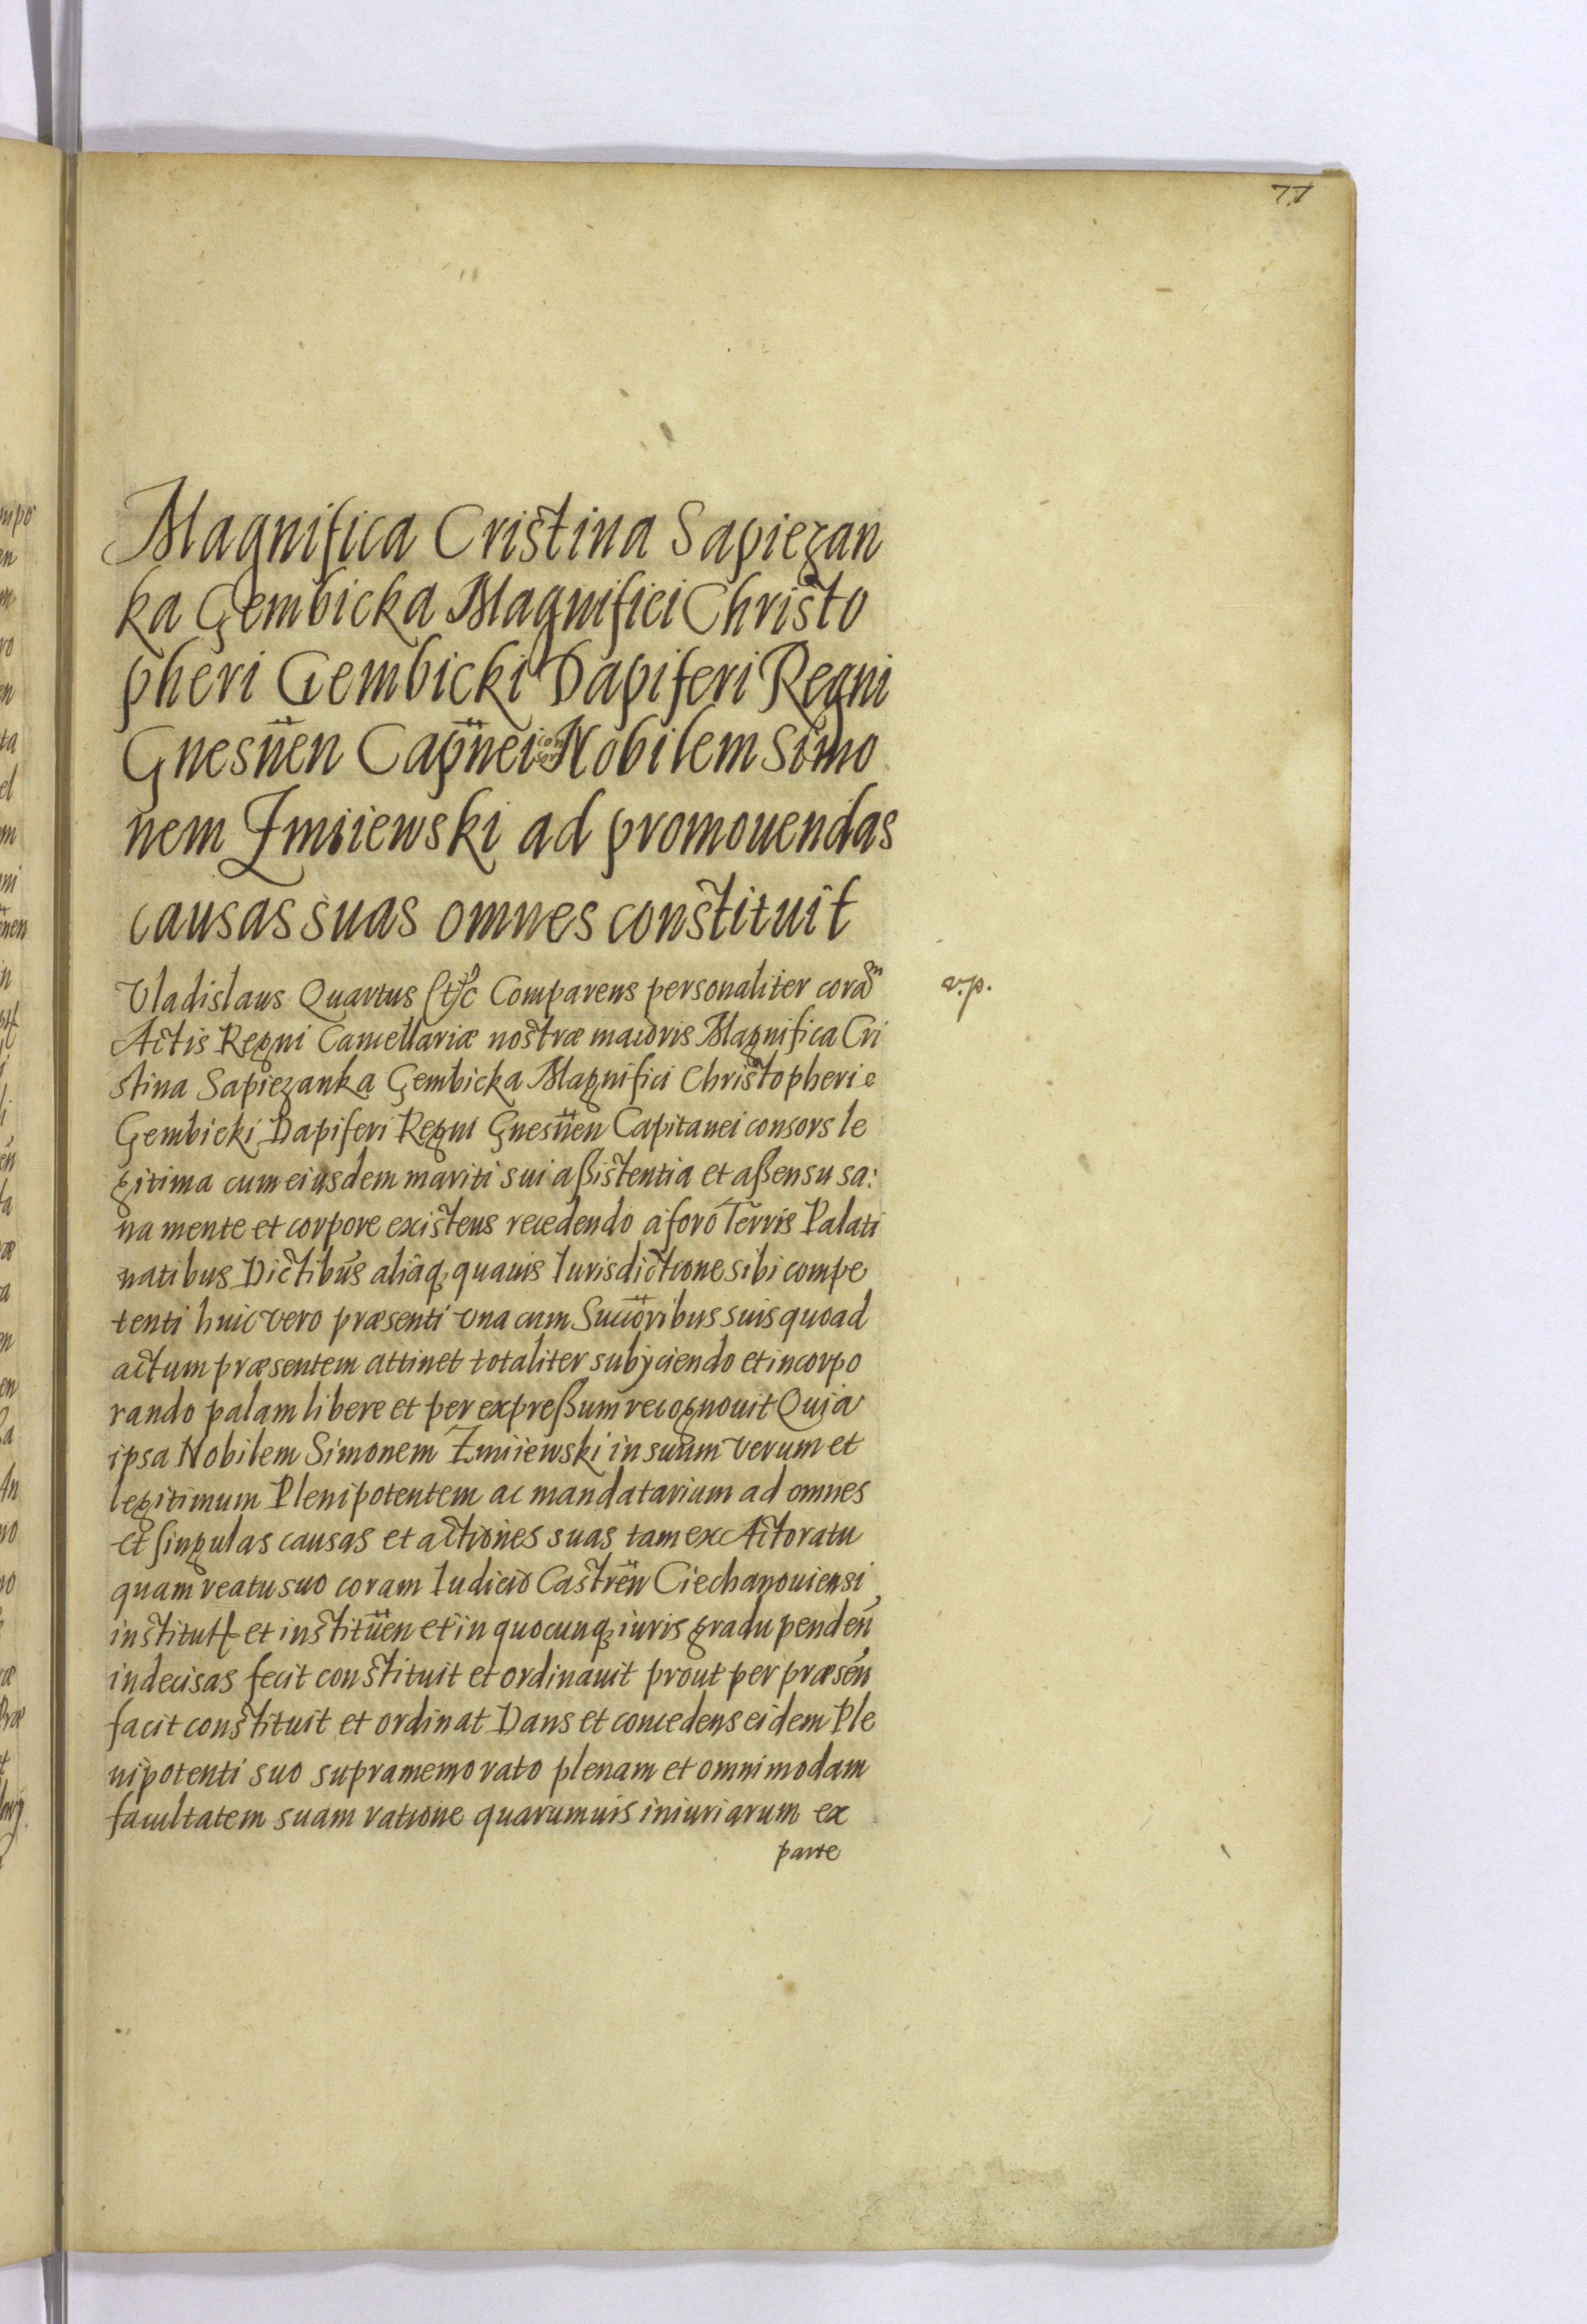 77
Magnifica Cristina Sapiezan
ka Gembicka Magnifici Christo
pheri Gembicki Dapiferi Regni
Gnesn̈en Cap̈nei Nobilem Simo
nem Zmiiewski ad promouendas
causas suas omnes constituit
Vladislaus Quartus etc Comparens personaliter coram v.p.
Actis Regni Cancellariæ nostræ maioris Magnifica Cri
stina Sapiezanka Gembicka Magnifici Christopheri
Gembicki Dapiferi Regni Gnesn̈en Capitanei consors le
gitima cum eiusdem mariti sui aßistentia et aßensu sa:
na mente et corpore existens recedendo a foro Terris Palati
natibus Dictibus aliaq quauis Iurisdictione sibi compe
tenti huic vero præsenti vna cum Succoribus suis quoad
actum præsentem attinet totaliter subÿciendo et incorpo
rando palam libere et per expreßum recognouit Quia
ipsa Nobilem Simonem Zmiiewski in suum verum et
legitimum Plenipotentem ac mandatarium ad omnes
et singulas causas et actiones suas tam ex Actoratu
quam reatu suo coram Iudicio Castren̈ Ciechanouiensi
institut et institüen et in quocunq iuris gradu penden̄
indecisas fecit constituit et ordinauit prout per præsen̄
facit constituit et ordinat Dans et concedens eidem Ple
nipotenti suo supramemorato plenam et omnimodam
facultatem suam ratione quarumuis iniuriarum ex
parte